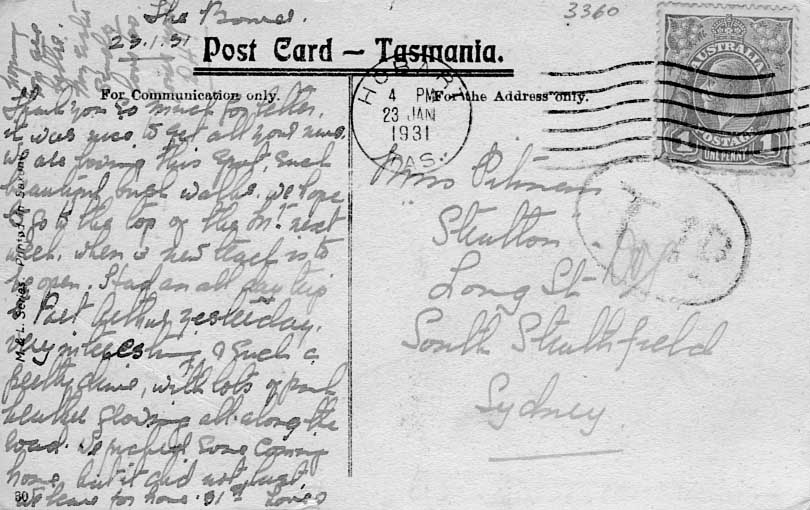 The Bower.
23.1.31
3360
Post Card — Tasmania.
For Communication only.
For the Address only.
HOBART
4 PM
23 JAN
1931
TAS.
AUSTRALIA
POSTAGE
1 ONE PENNY 1
Thank you so much for letter,
it was nice to get all your news.
We are loving this spot, such
beautiful bush walks. We hope
to go to the top of the Mt. next
week, when a new track is to
be open. Had an all day trip
to Port Arthur yesterday,
very interesting, & such a
pretty drive, with lots of pink
heather glowing all along the
road. We picked some coming
home, but it did not last.
We leave for home 31st Love
M & L. Series. Printed in
30
Miss Pitman
"
Long St
South Strathfield
Sydney
T